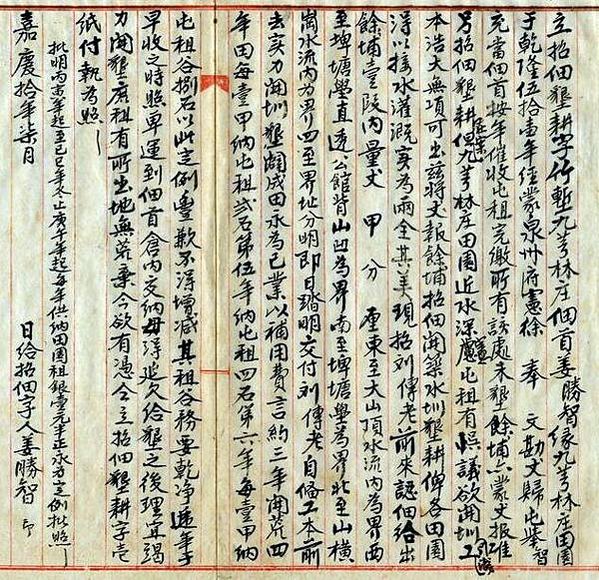 立招佃墾耕字竹塹九芎林庄佃首姜勝智緣九芎林庄田園
于乾隆伍拾壹年經蒙泉州府憲徐 奉 文勘丈歸屯舉智
充當佃首按年催收屯租完繳所有該處未墾餘埔亦蒙丈報在案准
另招佃墾耕但九芎林庄田園近水深慮屯租有悞議欲開圳工
本浩大無項可出茲將丈報餘埔招佃開築水圳墾耕俾各田園
得以接水灌溉實為兩全其美現招刘傳老前來認佃給出
餘埔壹段內量丈 甲 分 厘東至大山頂水流內為界西
至埤塘學直透公館背山凹為界南至埤塘學為界北至山橫
崗水流內為界四至界址分明即日踏明交付刘傳老自備工本前
去实力開圳墾闢成田永為己業以補用費言約三年開荒四
年田每壹甲納屯租弍石第伍年納屯租四石第六年每壹甲納
屯租谷捌石以此定例豐歉不得增減其租谷務要乾净遞年于
早收之時照單運到佃首倉內交納毋得追欠給墾之後理宜竭
力開墾庶租有所出地無荒棄今欲有憑仝立招佃墾耕字壹
紙付執為照
批明丙寅年起至己巳年止庚午年起每年供納田園租銀壹元正永為定例批照
嘉慶拾年柒月 日給招佃字人姜勝智